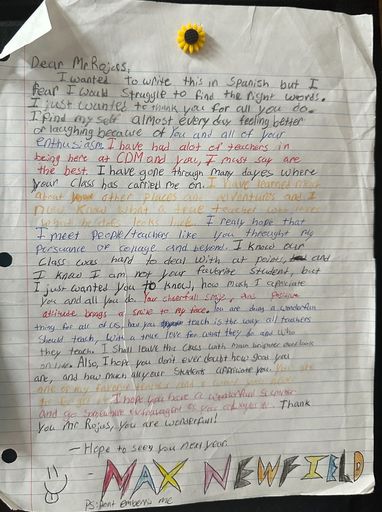 Dear Mr Rojas,
I wanted to write this in Spanish but I
fear I would struggle to find the right words.
I just wanted to thank you for all you do.
I find my self almost every day feeling better
or laughing because of You and all of your
enthusiasm. I have had alot of teachers in
being here at CDM and you, I must say are
the best. I have gone through many dayes where
your class has carried me on. I have learned more
about other places and adventures and I
now know what a true teacher
looks like. I realy hope that
I meet people/teachers like you throught my
persuance of collage and beyond. I know our
class was hard to deal with at points, and
I know I am not your favorite student, but
I just wanted you to know, how much I apreciate
you and all you do. Your cheerfull smile, and Positive
attitude brings a smile to my face. You are doing a wonderfull
thing for all of us, how you teach is the way all teachers
should teach, with a true love for what they do and who
they teach. I Shall leave this class with main brighter
Also, I hope you don't ever doubt how good you
are, and how much all your students appreciate you. You are
one of my favorite teachers
I hope you have a wonderful summer
and go somewhere extravagent Thank
you Mr Rojas, you are wonderful!
- Hope to see you next year.
MAX NEWFIELD
Ps: Dont emberris me